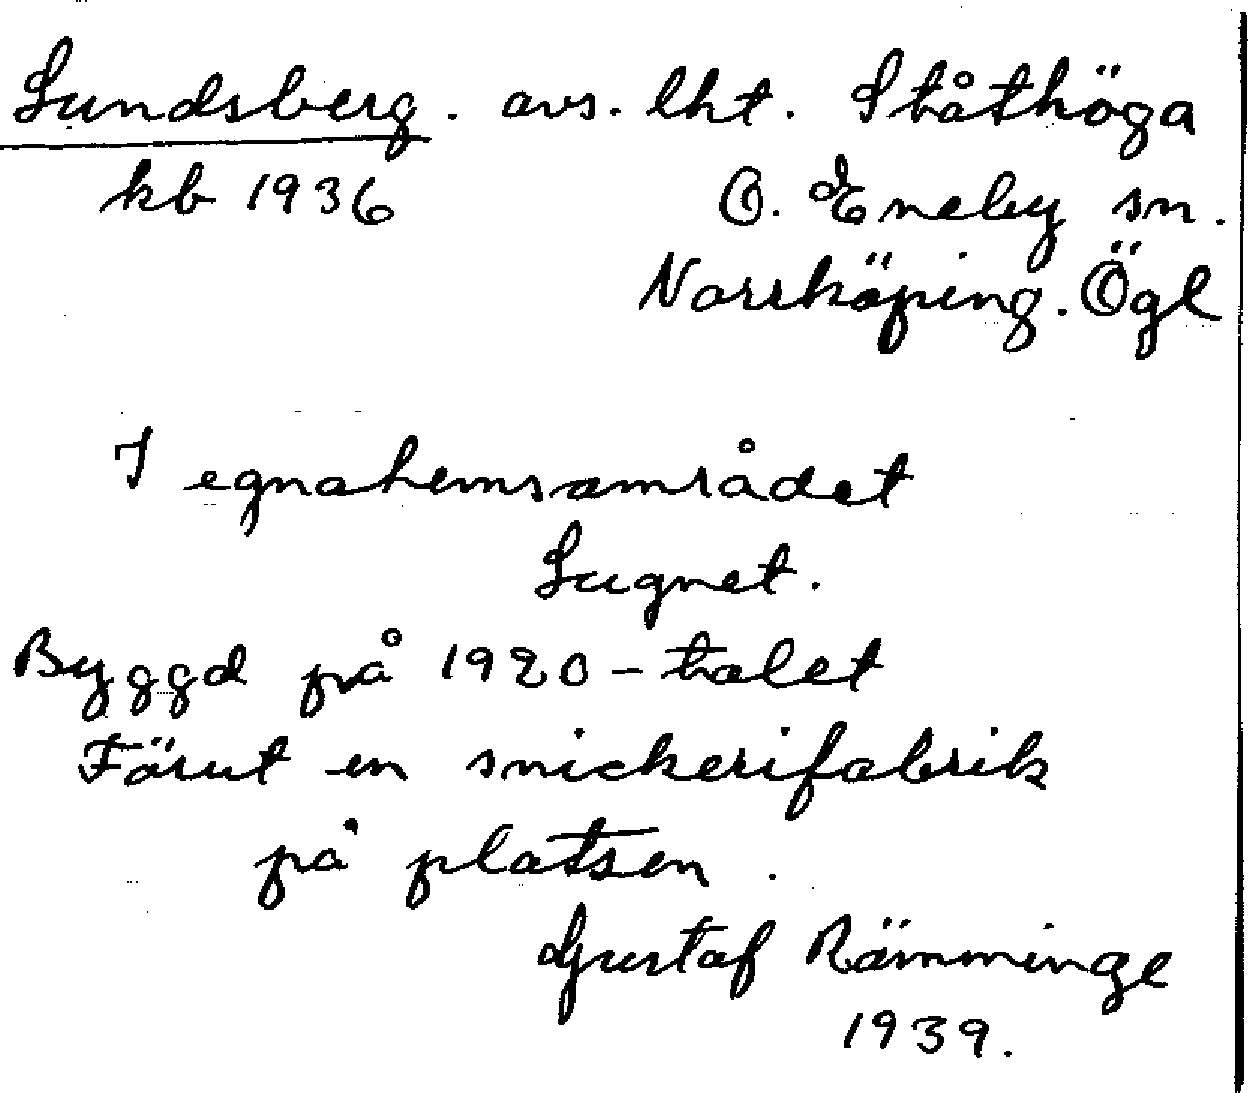 Lundsberg. avs. lht. Ståthöga
kb 1936 Ö. Eneby sn.
Norrköping. Ögl
I egnahemsområdet
Lugnet.
Byggd på 1920-talet
Förut en snickerifabrik
på platsen.
Gustaf Rämminge
1939.